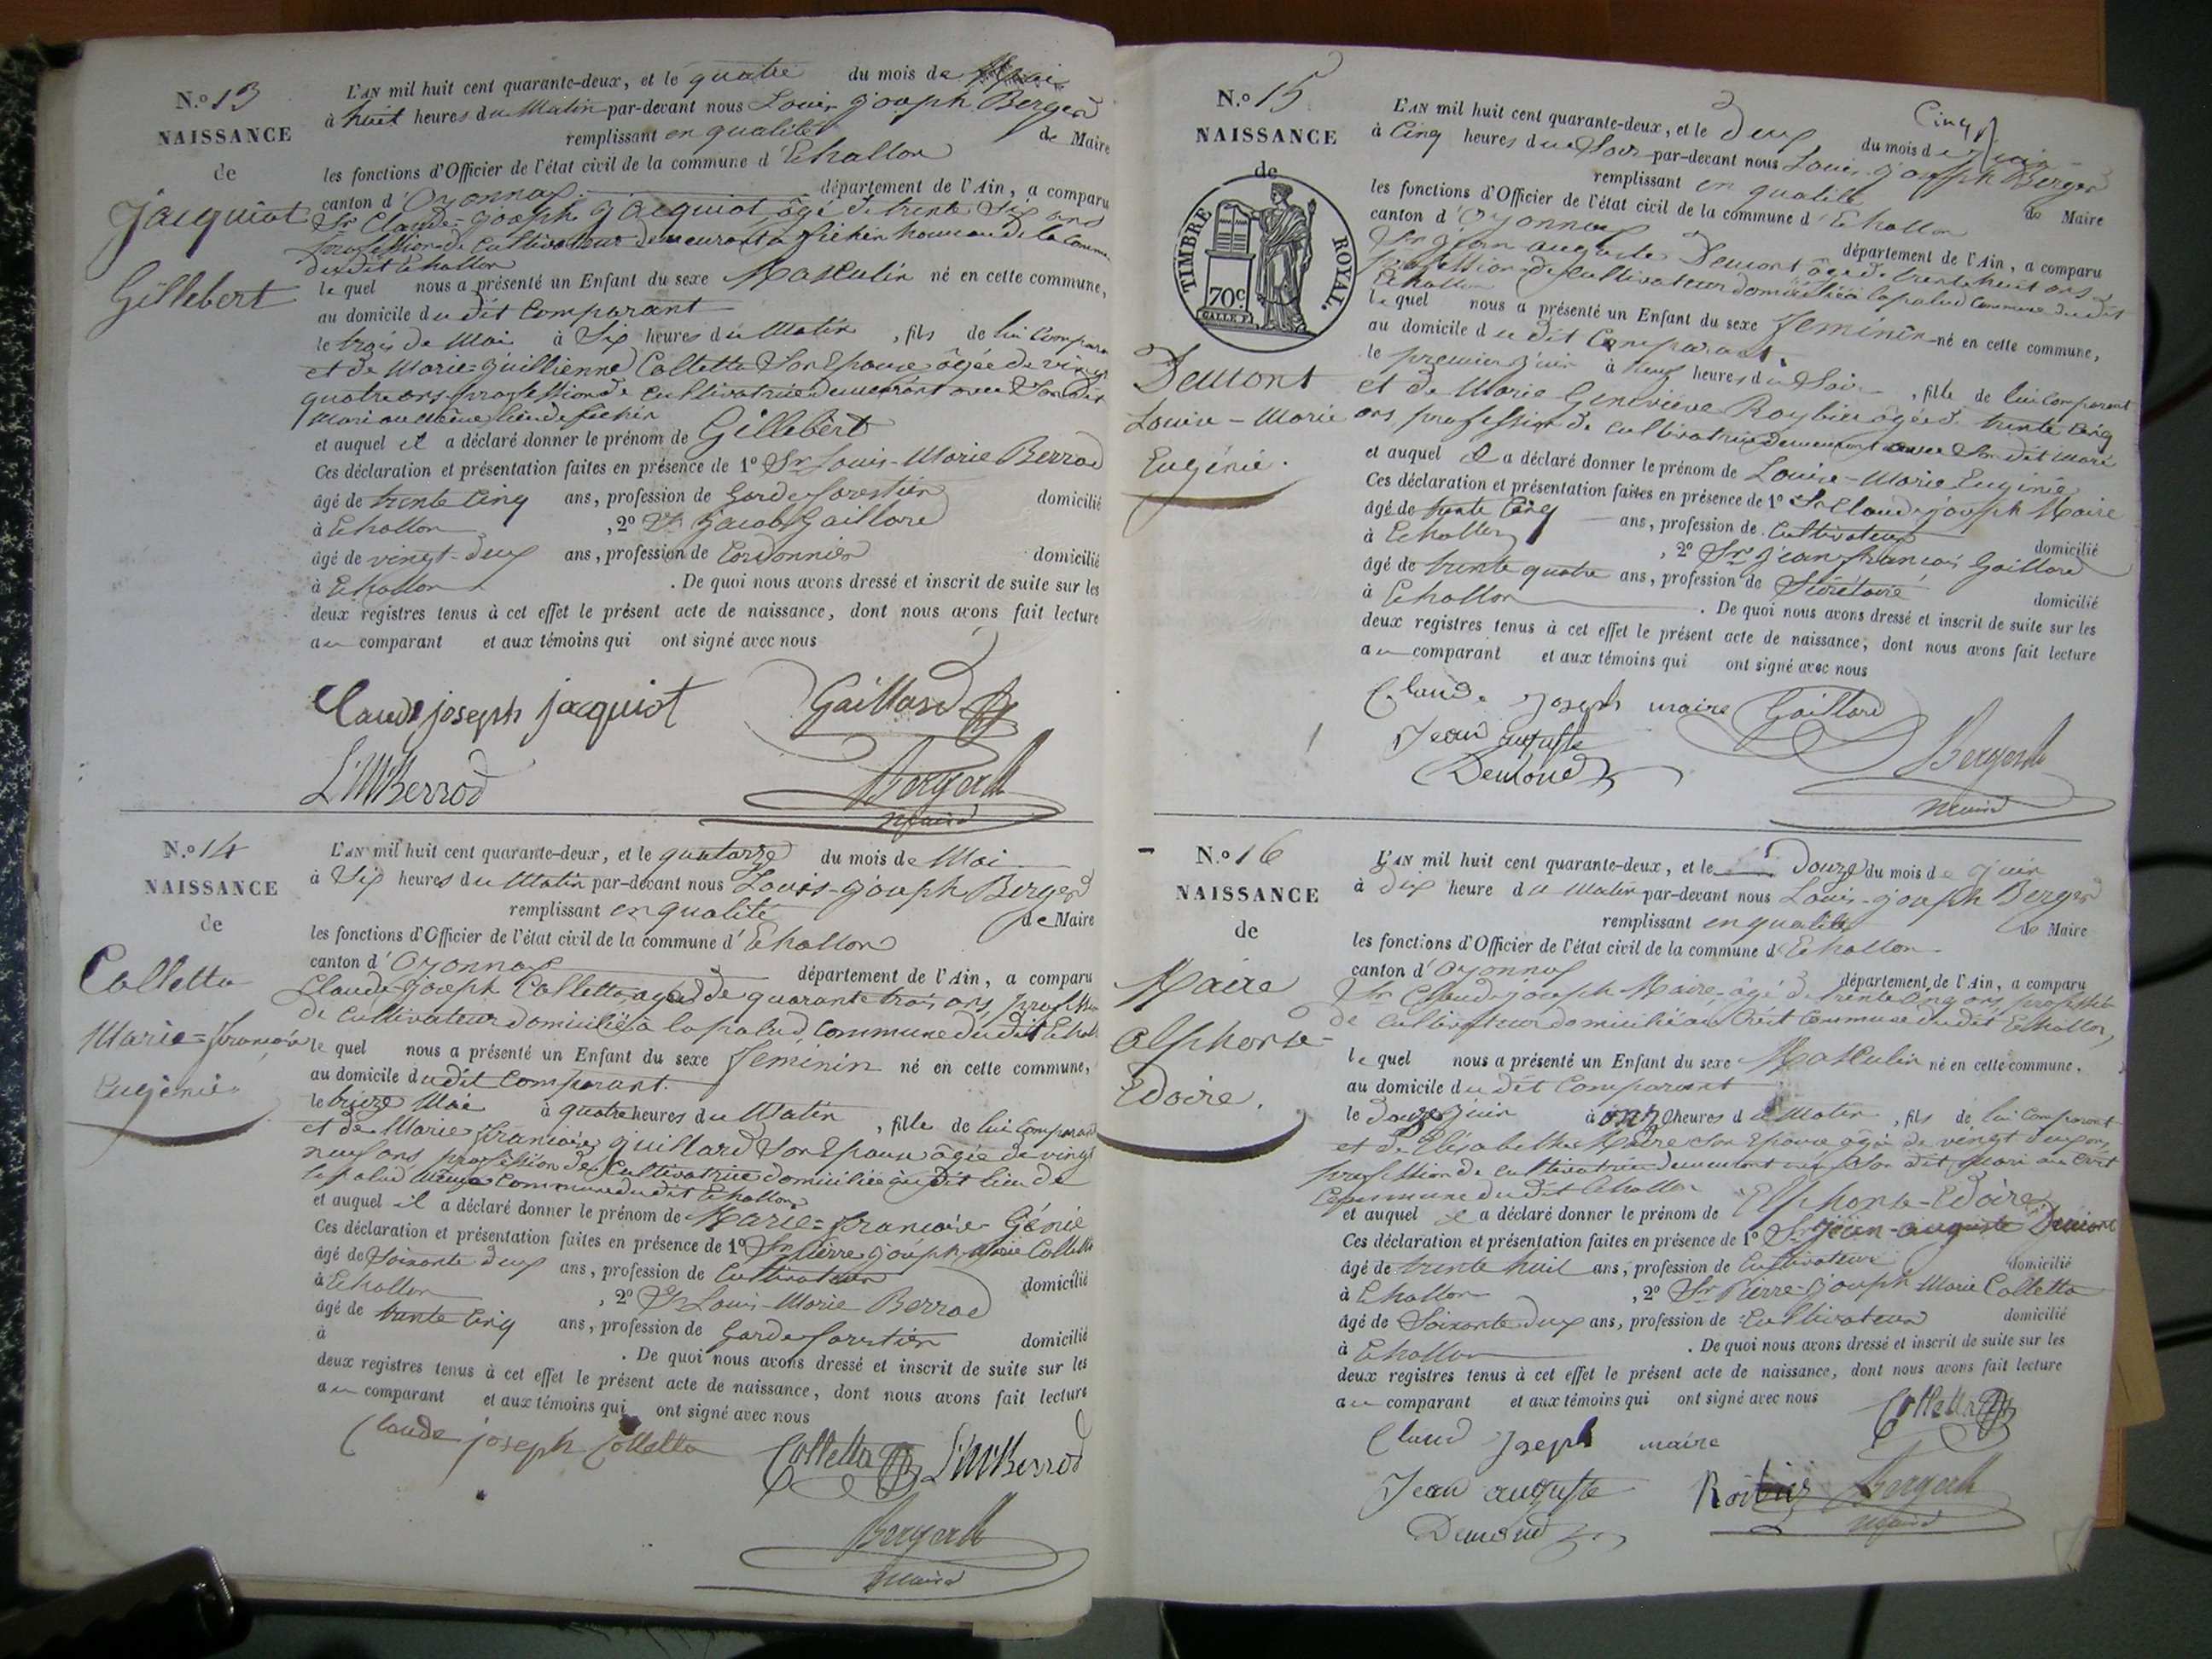 N.º 13
NAISSANCE
de
Jacquiot
Gillebert
L'AN mil huit cent quarante-deux, et le quatre du mois de Mai
à huit heures du Matin par-devant nous Louis Joseph Berger
remplissant en qualité de Maire
les fonctions d'Officier de l'état civil de la commune d'Echallon
canton d'Oyonnax département de l'Ain, a comparu
Sr Claude-Joseph Jacquiot âgé de trente Six ans
profession de Cultivateur demeurant à hameau de la Commune
du dit Echallon
lequel nous a présenté un Enfant du sexe Masculin né en cette commune,
au domicile du dit Comparant
le trois de Mai à Six heures du Matin, fils de lui Comparant
et de Marie-Juillienne Colletta Son Epouse âgée de vingt
quatre ans profession de Cultivatrice demeurant avec Son dit
Mari au Même lieu de
et auquel il a déclaré donner le prénom de Gillebert
Ces déclaration et présentation faites en présence de 1º Sr Louis-Marie Berrod
âgé de trente Cinq ans, profession de Garde forestier domicilié
à Echallon, 2º Sr Jacob Gaillard
âgé de vingt-deux ans, profession de Cordonnier domicilié
à Echallon. De quoi nous avons dressé et inscrit de suite sur les
deux registres tenus à cet effet le présent acte de naissance, dont nous avons fait lecture
au comparant et aux témoins qui ont signé avec nous
Claude joseph jacquiot Gaillard
L M Berrod Berger
maire
N.º 14
NAISSANCE
de
Colletta
Marie=françoise
Eugénie
L'AN mil huit cent quarante-deux, et le quatorze du mois de Mai
à Six heures du Matin par-devant nous Louis-Joseph Berger
remplissant en qualité de Maire
les fonctions d'Officier de l'état civil de la commune d'Echallon
canton d'Oyonnax département de l'Ain, a comparu
Claude-Joseph Colletta âgé de quarante trois ans, profession
de Cultivateur domicilié à lapalud, Commune du dit Echallon
lequel nous a présenté un Enfant du sexe feminin né en cette commune,
au domicile du dit Comparant
le treize Mai à quatre heures du Matin, fille de lui Comparant
et de Marie françoise Juillard Son Epouse âgée de vingt
neuf ans profession de Cultivatrice domiciliée au dit lieu de
lapalud même Commune du dit Echallon
et auquel il a déclaré donner le prénom de Marie=françoise Génie
Ces déclaration et présentation faites en présence de 1º Sr Pierre Joseph Marie Colletta
âgé de Soixante deux ans, profession de Cultivateur domicilié
à Echallon, 2º Sr Louis-Marie Berrod
âgé de trente Cinq ans, profession de Garde forestier domicilié
à . De quoi nous avons dressé et inscrit de suite sur les
deux registres tenus à cet effet le présent acte de naissance, dont nous avons fait lecture
au comparant et aux témoins qui ont signé avec nous
Claude joseph Colletta Colletta L M Berrod
Berger
maire
N.º 15
NAISSANCE
de
TIMBRE ROYAL.
70c.
Demont
Louise-Marie
Eugénie.
Cinq
L'AN mil huit cent quarante-deux, et le deux du mois de Juin
à Cinq heures du Soir par-devant nous Louis Joseph Berger
remplissant en qualité de Maire
les fonctions d'Officier de l'état civil de la commune d'Echallon
canton d'Oyonnax département de l'Ain, a comparu
Sr Jean auguste Demont âgé de trente huit ans
profession de Cultivateur domicilié à lapalud Commune du dit
Echallon
lequel nous a présenté un Enfant du sexe feminin né en cette commune,
au domicile du dit Comparant.
le premier Juin à heures du Soir, fille de lui Comparant
et de Marie Geneviève Roybier âgée de trente Cinq
ans, profession de Cultivatrice demeurant avec Son dit Mari
et auquel il a déclaré donner le prénom de Louise-Marie Eugénie
Ces déclaration et présentation faites en présence de 1º Sr Claude Joseph Maire
âgé de trente Cinq ans, profession de Cultivateur domicilié
à Echallon, 2º Sr Jean françois Gaillard
âgé de trente quatre ans, profession de Sécrétaire domicilié
à Echallon. De quoi nous avons dressé et inscrit de suite sur les
deux registres tenus à cet effet le présent acte de naissance, dont nous avons fait lecture
au comparant et aux témoins qui ont signé avec nous
Claude joseph maire Gaillard
Jean auguste Berger
Demond maire
N.º 16
NAISSANCE
de
Maire
Alphonse-
Edoire.
L'AN mil huit cent quarante-deux, et le Douze du mois de Juin
à heure du Matin par-devant nous Louis-Joseph Berger
remplissant en qualité de Maire
les fonctions d'Officier de l'état civil de la commune d'Echallon
canton d'Oyonnax département de l'Ain, a comparu
Sr Claude joseph Maire âgé de trente Cinq ans, profession
de Cultivateur domicilié au Crêt Commune du dit Echallon,
lequel nous a présenté un Enfant du sexe Masculin né en cette commune.
au domicile du dit Comparant
le Douze Juin à onze heures du Matin, fils de lui Comparant
et de Elisabeth Maire Son Epouse âgée de vingt deux ans
profession de Cultivatrice demeurant avec Son dit Mari au Crêt
Commune du dit Echallon
et auquel il a déclaré donner le prénom de Elphonse-Edoire
Ces déclaration et présentation faites en présence de 1º Sr Jean-auguste Demont
âgé de trente huit ans, profession de Cultivateur domicilié
à Echallon, 2º Sr Pierre-Joseph Marie Colletta
âgé de Soixante deux ans, profession de Cultivateur domicilié
à Echallon. De quoi nous avons dressé et inscrit de suite sur les
deux registres tenus à cet effet le présent acte de naissance, dont nous avons fait lecture
au comparant et aux témoins qui ont signé avec nous Colletta
Claud Joseph maire
Jean auguste Berger
Demond maire